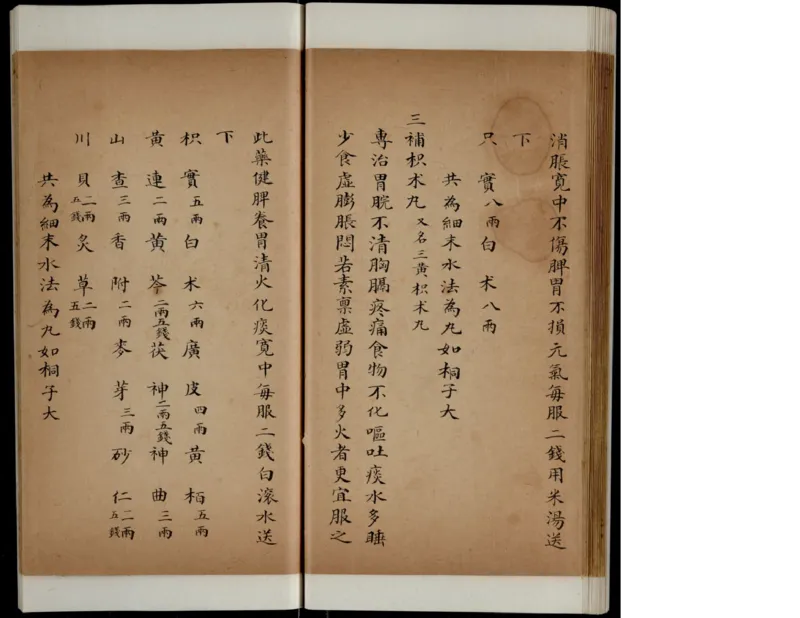 消脹寬中不傷脾胃不損元氣每服二錢用米湯送
下
只實八兩白术八兩
共為細末水法為丸如桐子大
三補枳术丸又名三黃枳术丸
專治胃脘不清胸膈疼痛食物不化嘔吐痰水多睡
少食虛膨脹悶若素禀虛弱胃中多火者更宜服之
此藥健脾養胃清火化痰寬中每服二錢白滾水送
下
枳實五兩白术六兩廣皮四兩黃栢五兩
黃連二兩黃芩二兩五錢茯神二兩五錢神曲三兩
山查三兩香附二兩麥芽三兩砂仁二兩五錢
川貝二兩五錢炙草二兩五錢
共為細末水法為丸如桐子大